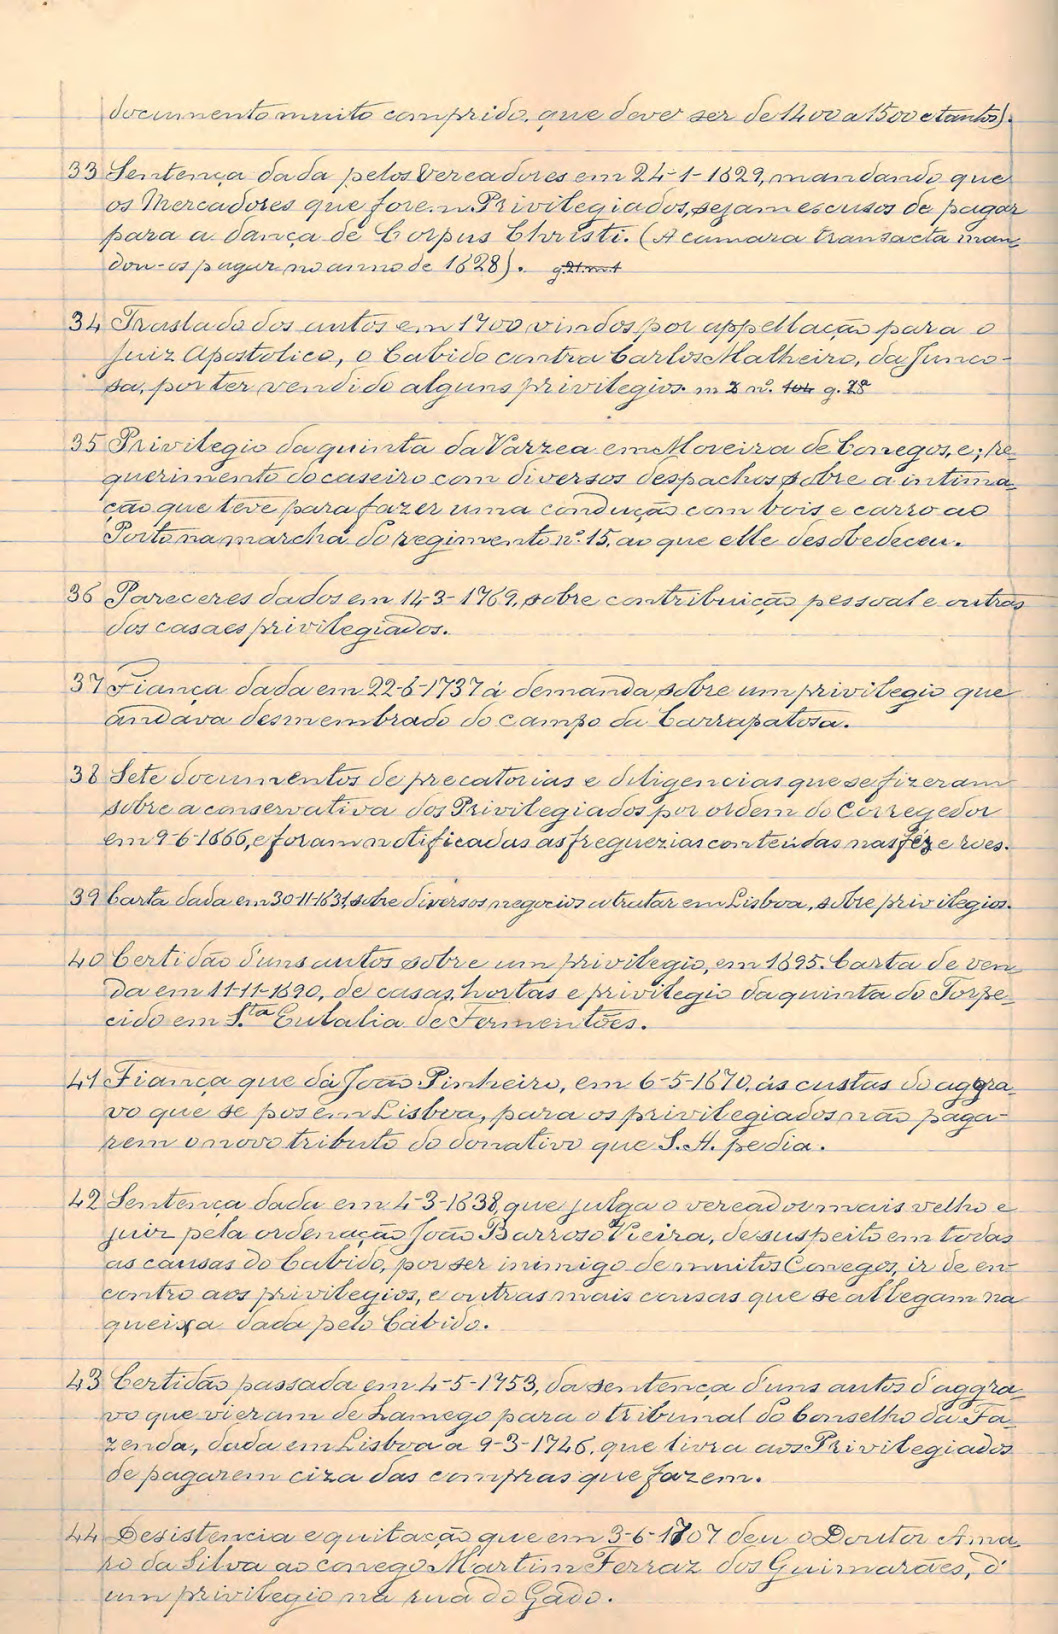 documento muito comprido, que dever ser de 1400 a 1500 e tantos).
33 Sentença dada pelos Vereadores em 24-1-1629, mandando que
os Mercadores que forem Privilegiados, sejam escusos de pagar
para a dança de Corpus Christi. (A camara transacta man-
dou-os pagar no anno de 1628).
34 Traslado dos autos em 1700 vindos por appellação para o
Juiz Apostolico, o Cabido contra Carlos Malheiro, da Junco-
sa, por ter vendido alguns privilegios. m 2 nº. 104 g. 28
35 Privilegio da quinta da Varzea em Moreira de Conegos, e; re-
querimento do caseiro com diversos despachos sobre a intima-
ção que teve para fazer uma condução com bois e carro ao
Porto na marcha do regimento nº. 15, ao que elle desobedeceu.
36 Pareceres dados em 14-3-1769, sobre contribuição pessoal e outras
dos casaes privilegiados.
37 Fiança dada em 22-6-1737 á demanda, sobre um privilegio que
andava desmembrado do campo da Carrapatosa.
38 Sete documentos de precatorias e diligencias que se fizeram
sobre a conservativa dos Privilegiados por ordem do Corregedor
em 9-6-1666, e foram notificadas as freguezias conteúdas nas fez e roes.
39 Carta dada em 30-11-1631, sobre diversos negocios a tratar em Lisboa, sobre privilegios.
40 Certidão d'uns autos sobre um privilegio, em 1695. Carta de ven-
da em 11-11-1690, de casas, hortas e privilegio da quinta do Torpe-
cido em S.ta Eulalia de Fermentões.
41 Fiança que dá João Pinheiro, em 6-5-1670, ás custas do aggra-
vo que se pos em Lisboa, para os privilegiados não paga-
rem o novo tributo do donativo que S. A. pedia.
42 Sentença dada em 4-3-1638, que julga o vereador mais velho e
juiz pela ordenação João Barroso Vieira, de suspeito em todas
as causas do Cabido, por ser inimigo de muitos Conegos, ir de en-
contro aos privilegios, e outras mais causas que se allegam na
queixa dada pelo Cabido.
43 Certidão passada em 4-5-1753, da sentença d'uns autos d'aggra-
vo que vieram de Lamego para o tribunal do Conselho da Fa-
zenda, dada em Lisboa a 9-3-1746, que livra aos Privilegiados
de pagarem ciza das compras que fazem.
44 Desistencia e quitação que em 3-6-1707 deu o Doutor Ama-
ro da Silva ao conego Martim Ferraz dos Guimarães, d'
um privilegio na rua do Gado.